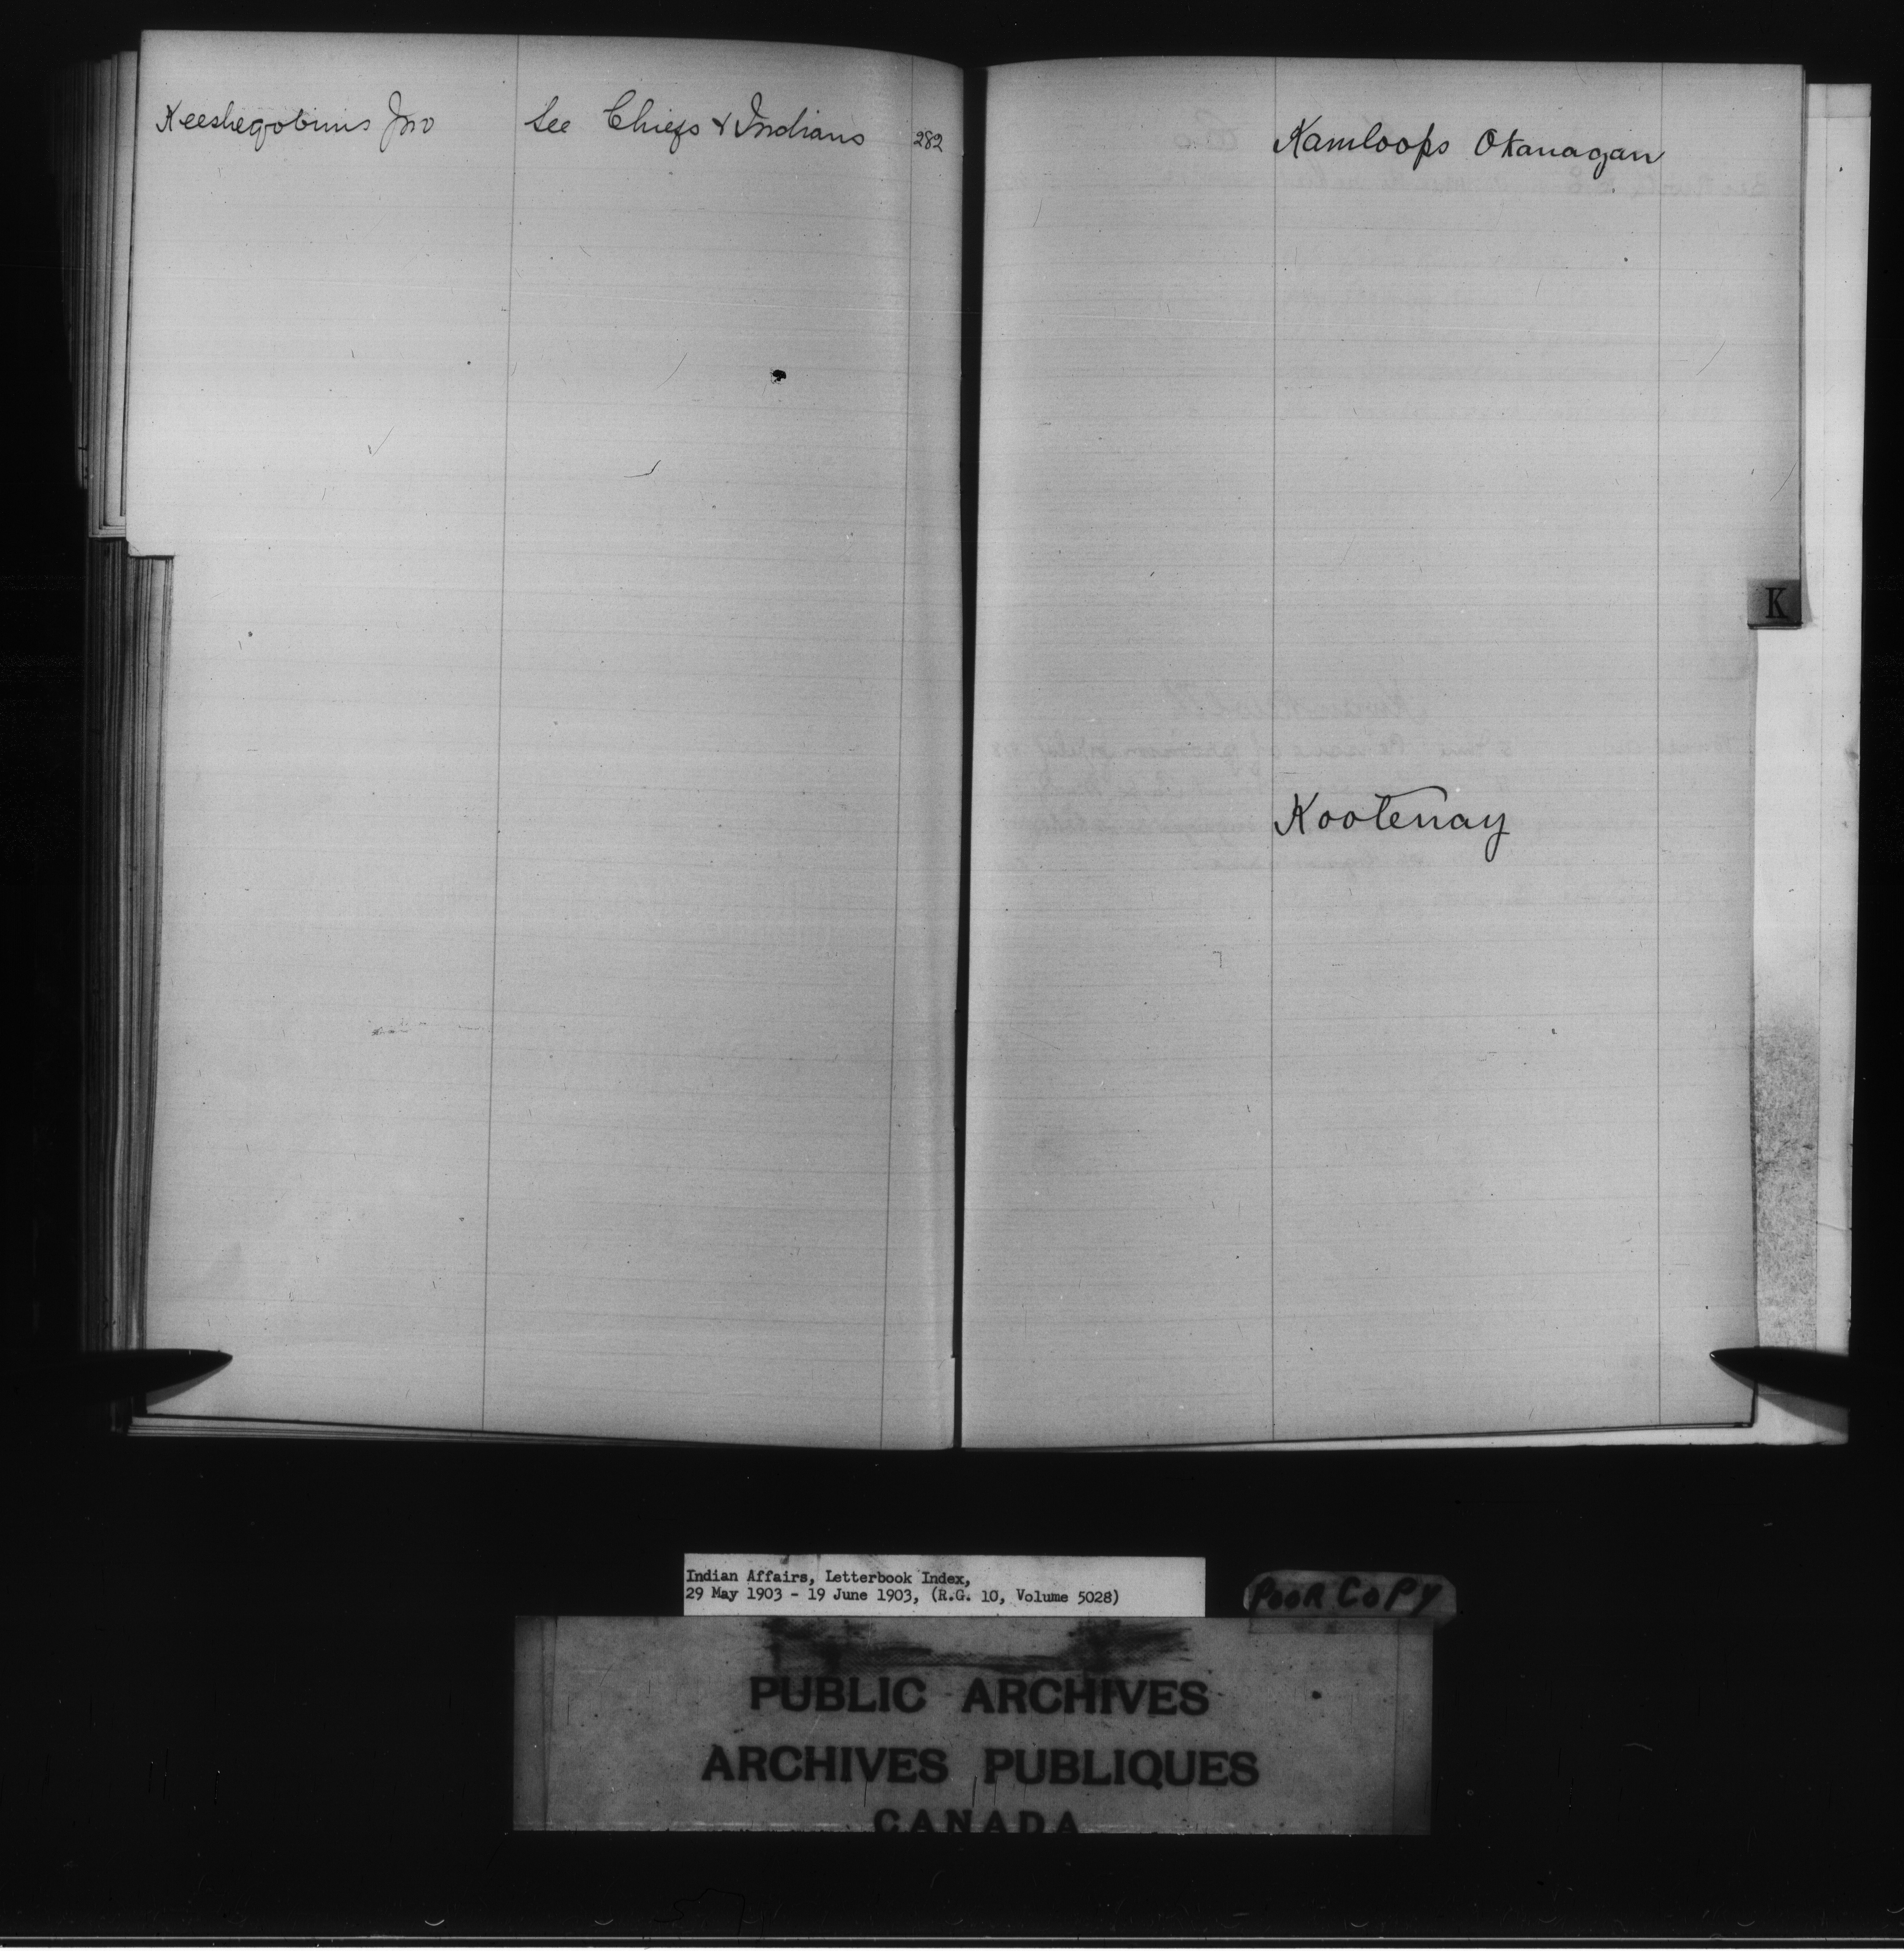 Keeshegobinis Jno See Chiefs & Indians 282
Kamloops Okanagan
K
Kootenay
Indian Affairs, Letterbook Index,
29 May 1903 - 19 June 1903, (R.G. 10, Volume 5028)
POOR COPY
PUBLIC ARCHIVES
ARCHIVES PUBLIQUES
CANADA